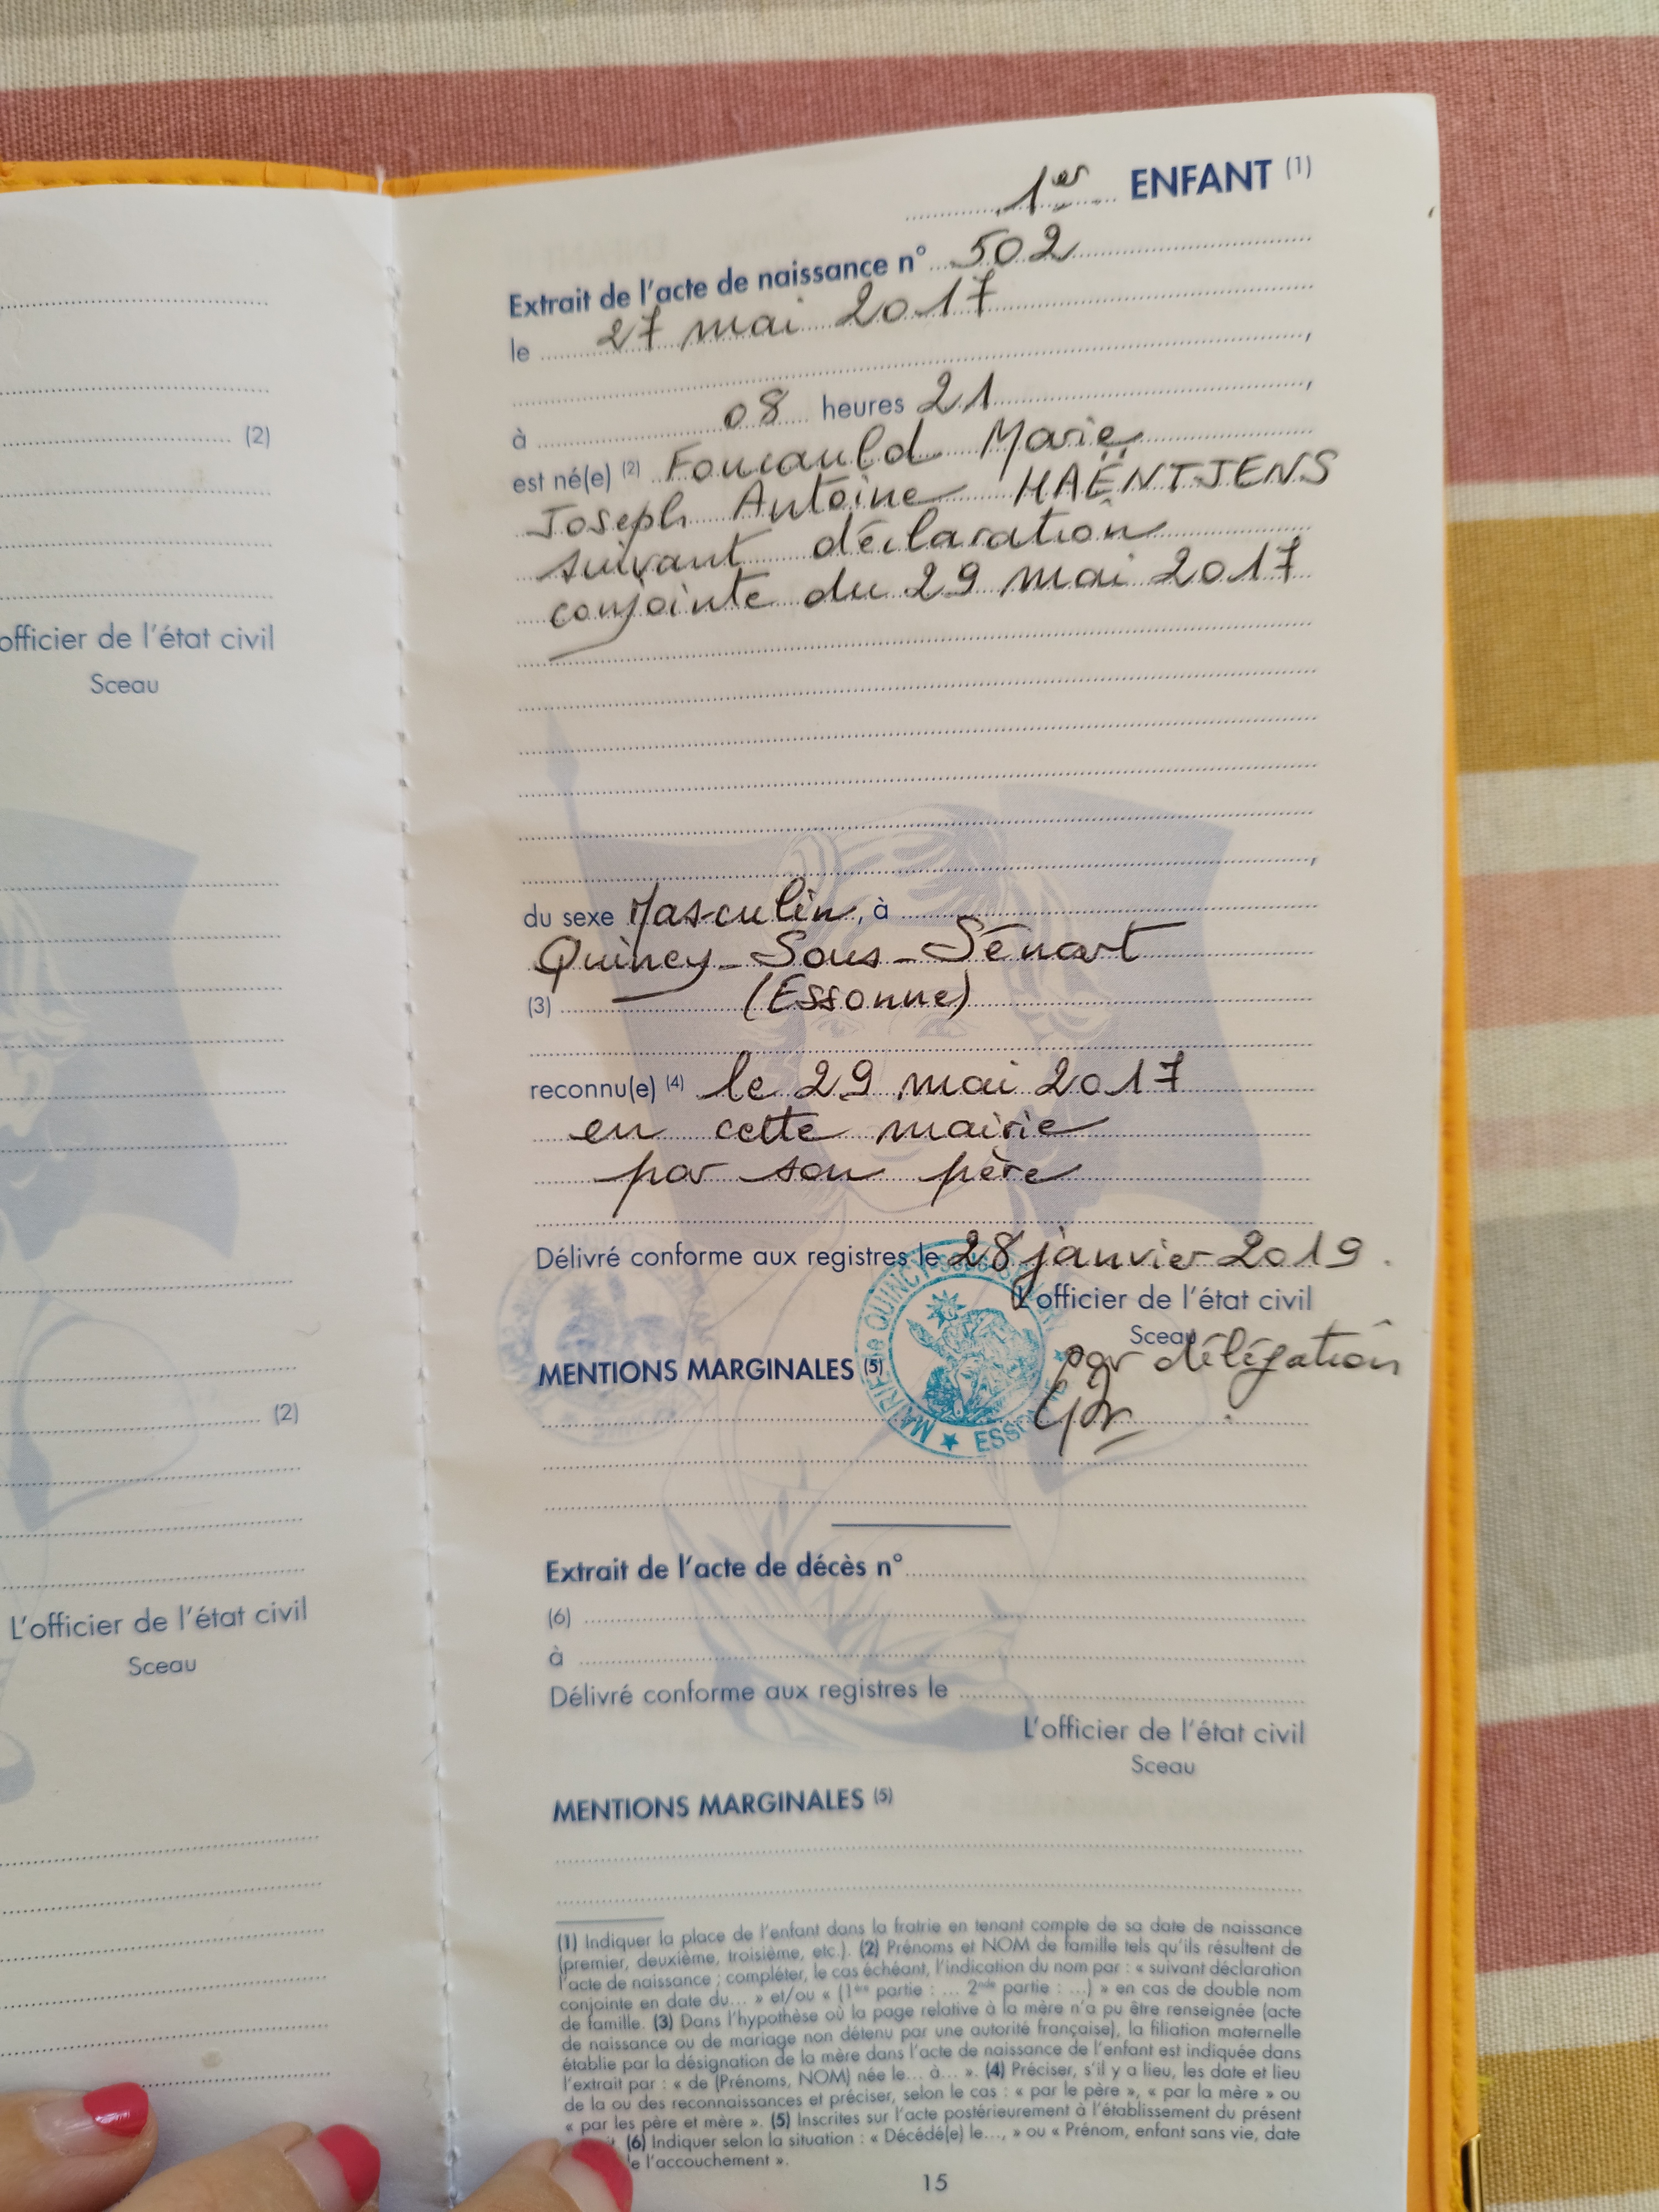 (2)
officier de l'état civil
Sceau
(2)
L'officier de l'état civil
Sceau
1er ENFANT (1)
Extrait de l'acte de naissance n° 502
le 27 mai 2017
,
à 08 heures 21 ,
est né(e) (2) Foucauld Marie
Joseph Antoine HAËNTJENS
suivant déclaration
conjointe du 29 mai 2017
,
du sexe Masculin, à
Quincy-Sous-Sénart
(3) (Essonne)
reconnu(e) (4) le 29 mai 2017
en cette mairie
par son père
Délivré conforme aux registres le 28 janvier 2019.
L'officier de l'état civil
Sceau
par délégation
MENTIONS MARGINALES (5)
MAIRIE de QUINCY
★ ESS
Extrait de l'acte de décès n°
(6)
à
Délivré conforme aux registres le
L'officier de l'état civil
Sceau
MENTIONS MARGINALES (5)
(1) Indiquer la place de l'enfant dans la fratrie en tenant compte de sa date de naissance
(premier, deuxième, troisième, etc.). (2) Prénoms et NOM de famille tels qu'ils résultent de
l'acte de naissance ; compléter, le cas échéant, l'indication du nom par : « suivant déclaration
conjointe en date du... » et/ou « (1ère partie : ... 2nde partie : ...) » en cas de double nom
de famille. (3) Dans l'hypothèse où la page relative à la mère n'a pu être renseignée (acte
de naissance ou de mariage non détenu par une autorité française), la filiation maternelle
établie par la désignation de la mère dans l'acte de naissance de l'enfant est indiquée dans
l'extrait par : « de (Prénoms, NOM) née le... à... ». (4) Préciser, s'il y a lieu, les date et lieu
de la ou des reconnaissances et préciser, selon le cas : « par le père », « par la mère » ou
« par les père et mère ». (5) Inscrites sur l'acte postérieurement à l'établissement du présent
(6) Indiquer selon la situation : « Décédé(e) le..., » ou « Prénom, enfant sans vie, date
e l'accouchement ».
15